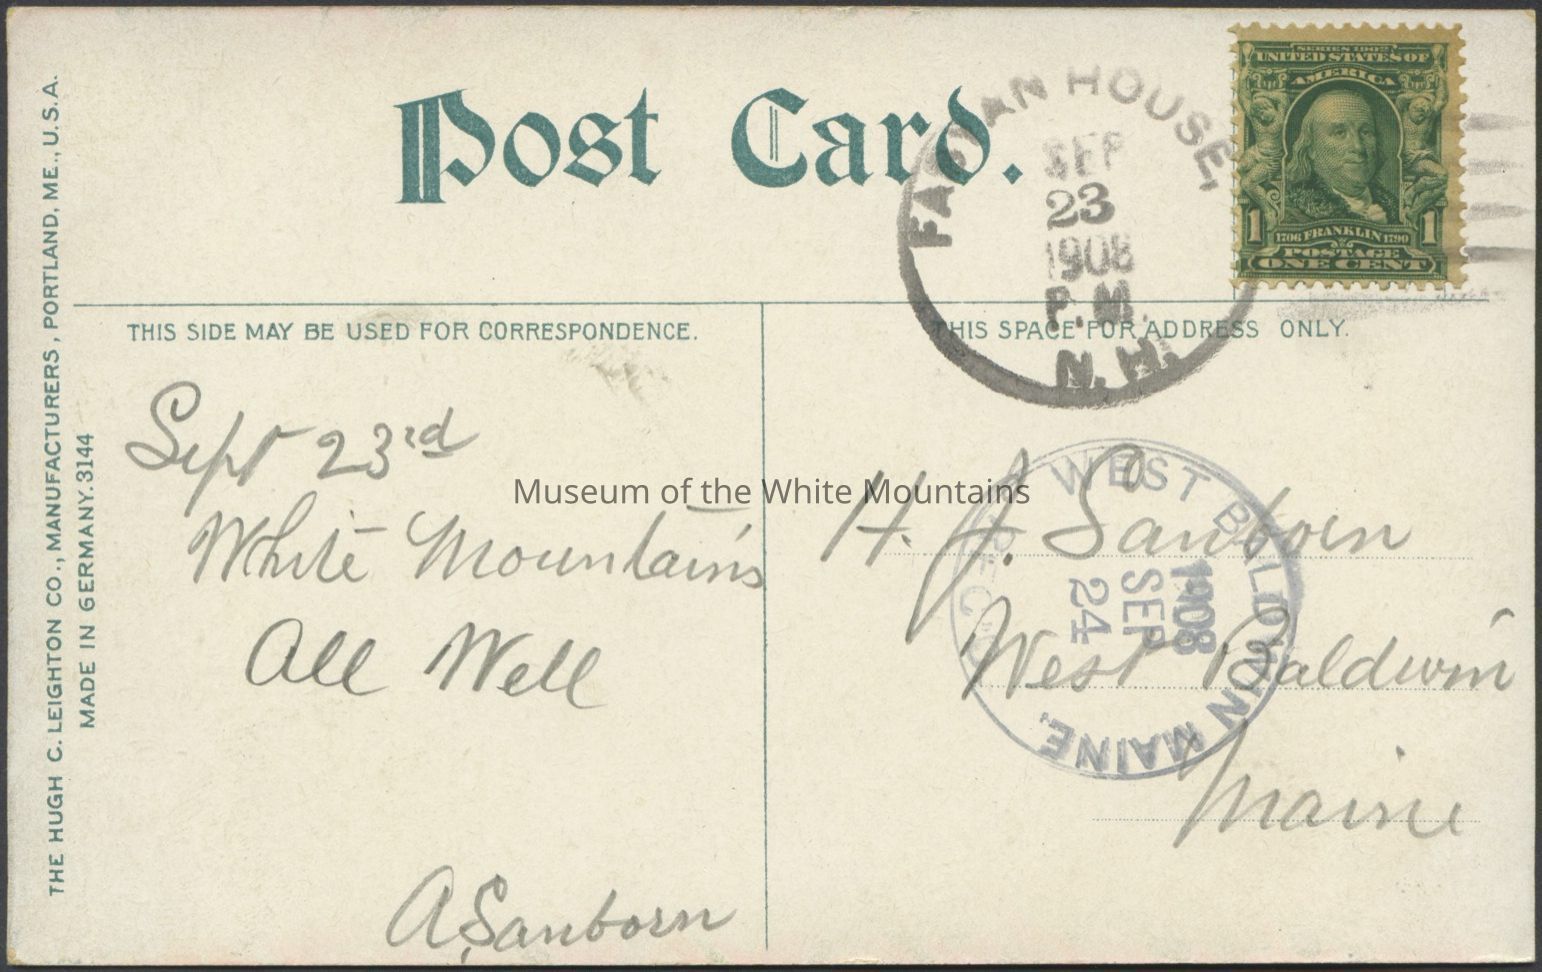 Post Card.
FABYAN HOUSE,
SEP
23
1908
P.M.
N.H.
SERIES 1902
UNITED STATES OF
AMERICA
1 1
1706 FRANKLIN 1790
POSTAGE
ONE CENT
THE HUGH C. LEIGHTON CO., MANUFACTURERS, PORTLAND, ME., U.S.A.
MADE IN GERMANY. 3144
THIS SIDE MAY BE USED FOR CORRESPONDENCE.
THIS SPACE FOR ADDRESS ONLY.
Sept 23rd
White Mountains
All Well
A Sanborn
Museum of the White Mountains
H. J. Sanborn
West Baldwin
Maine
WEST BALDWIN MAINE,
REC'D
1908
SEP
24